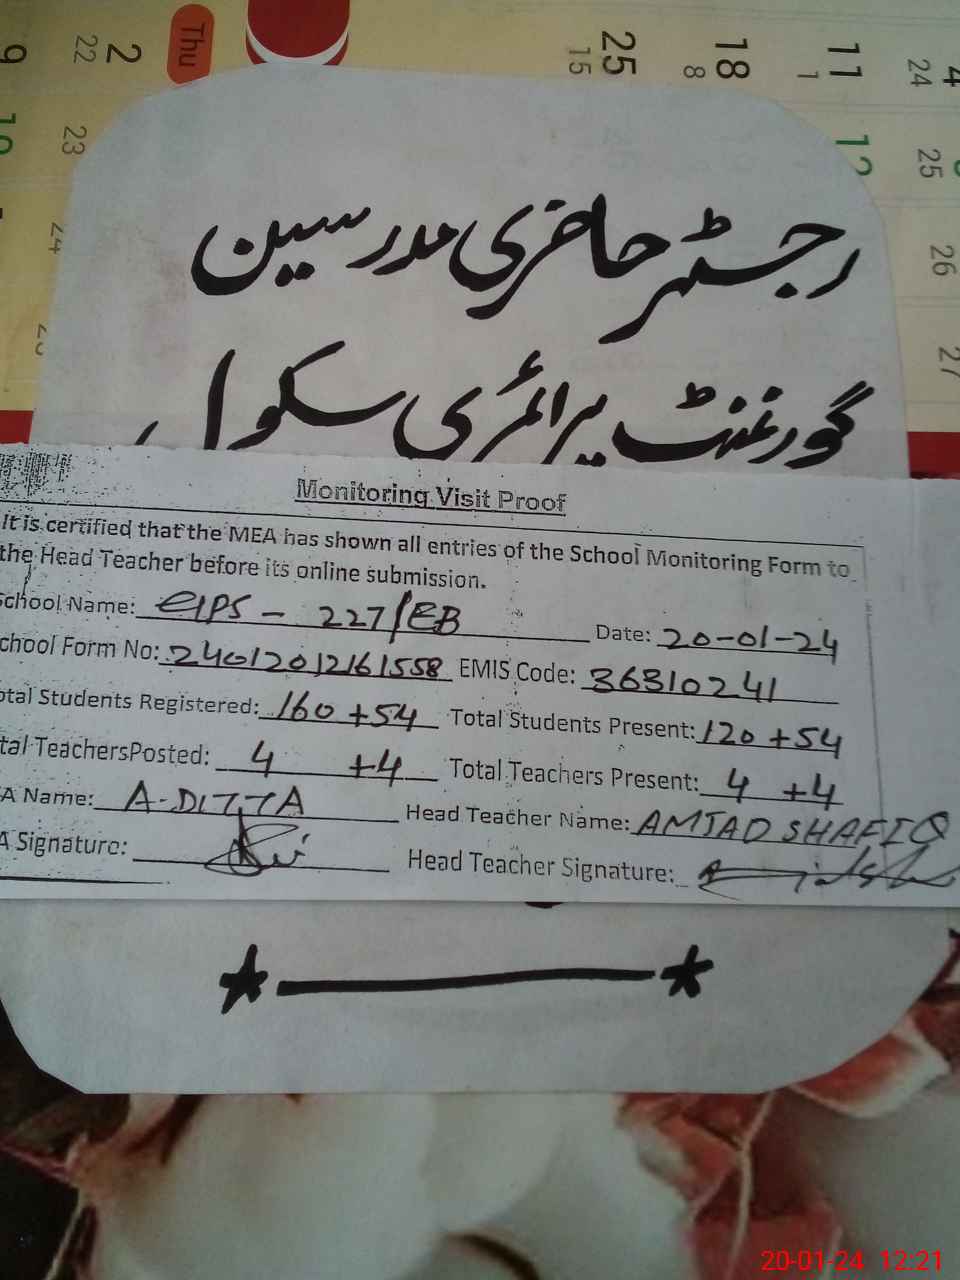 Thu
2 22
9
23
24
25 15
18 8
11 1
4 24
12
25
26
27
رجسٹر حاضری مدرسین
گورنمنٹ پرائمری سکول
Monitoring Visit Proof
It is certified that the MEA has shown all entries of the School Monitoring Form to
the Head Teacher before its online submission.
School Name: GPS - 227/EB Date: 20-01-24
chool Form No: 24012012161558 EMIS Code: 36310241
otal Students Registered: 160 +54 Total Students Present: 120 +54
tal TeachersPosted: 4 +4 Total Teachers Present: 4 +4
A Name: A-DITTA Head Teacher Name: AMJAD SHAFIQ
A Signature: Head Teacher Signature:
20-01-24 12:21